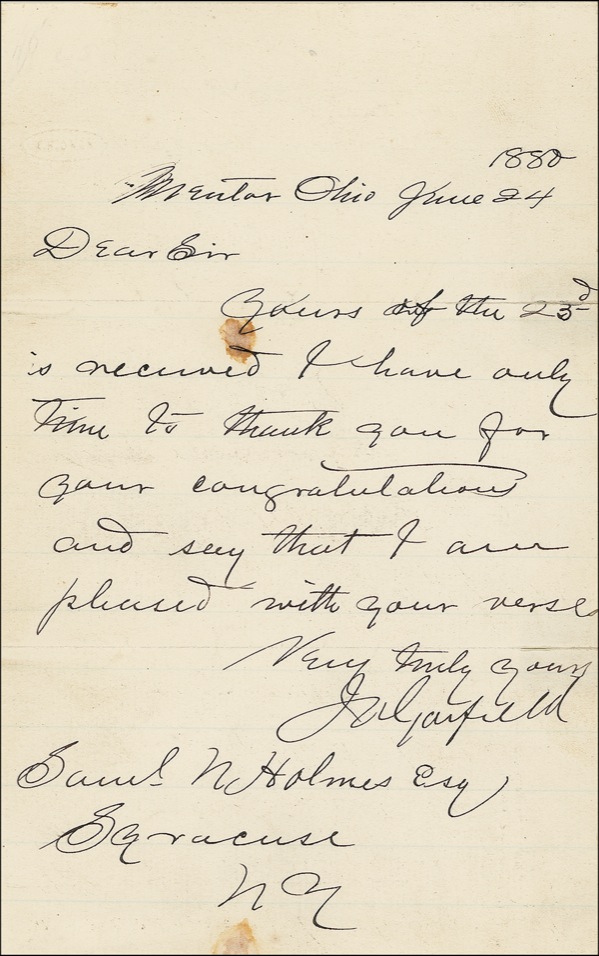 1880
Mentor Ohio June 24
Dear Sir
Yours of the 23d
is received I have only
time to thank you for
your congratulations
and say that I am
pleased with your verses
Very truly yours
J A Garfield
Saml N Holmes Esq
Syracuse
N Y